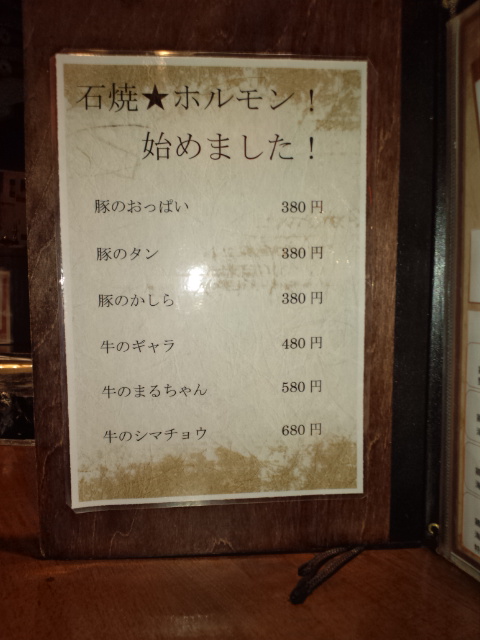 石焼★ホルモン！
始めました！
豚のおっぱい 380 円
豚のタン 380 円
豚のかしら 380 円
牛のギャラ 480 円
牛のまるちゃん 580 円
牛のシマチョウ 680 円